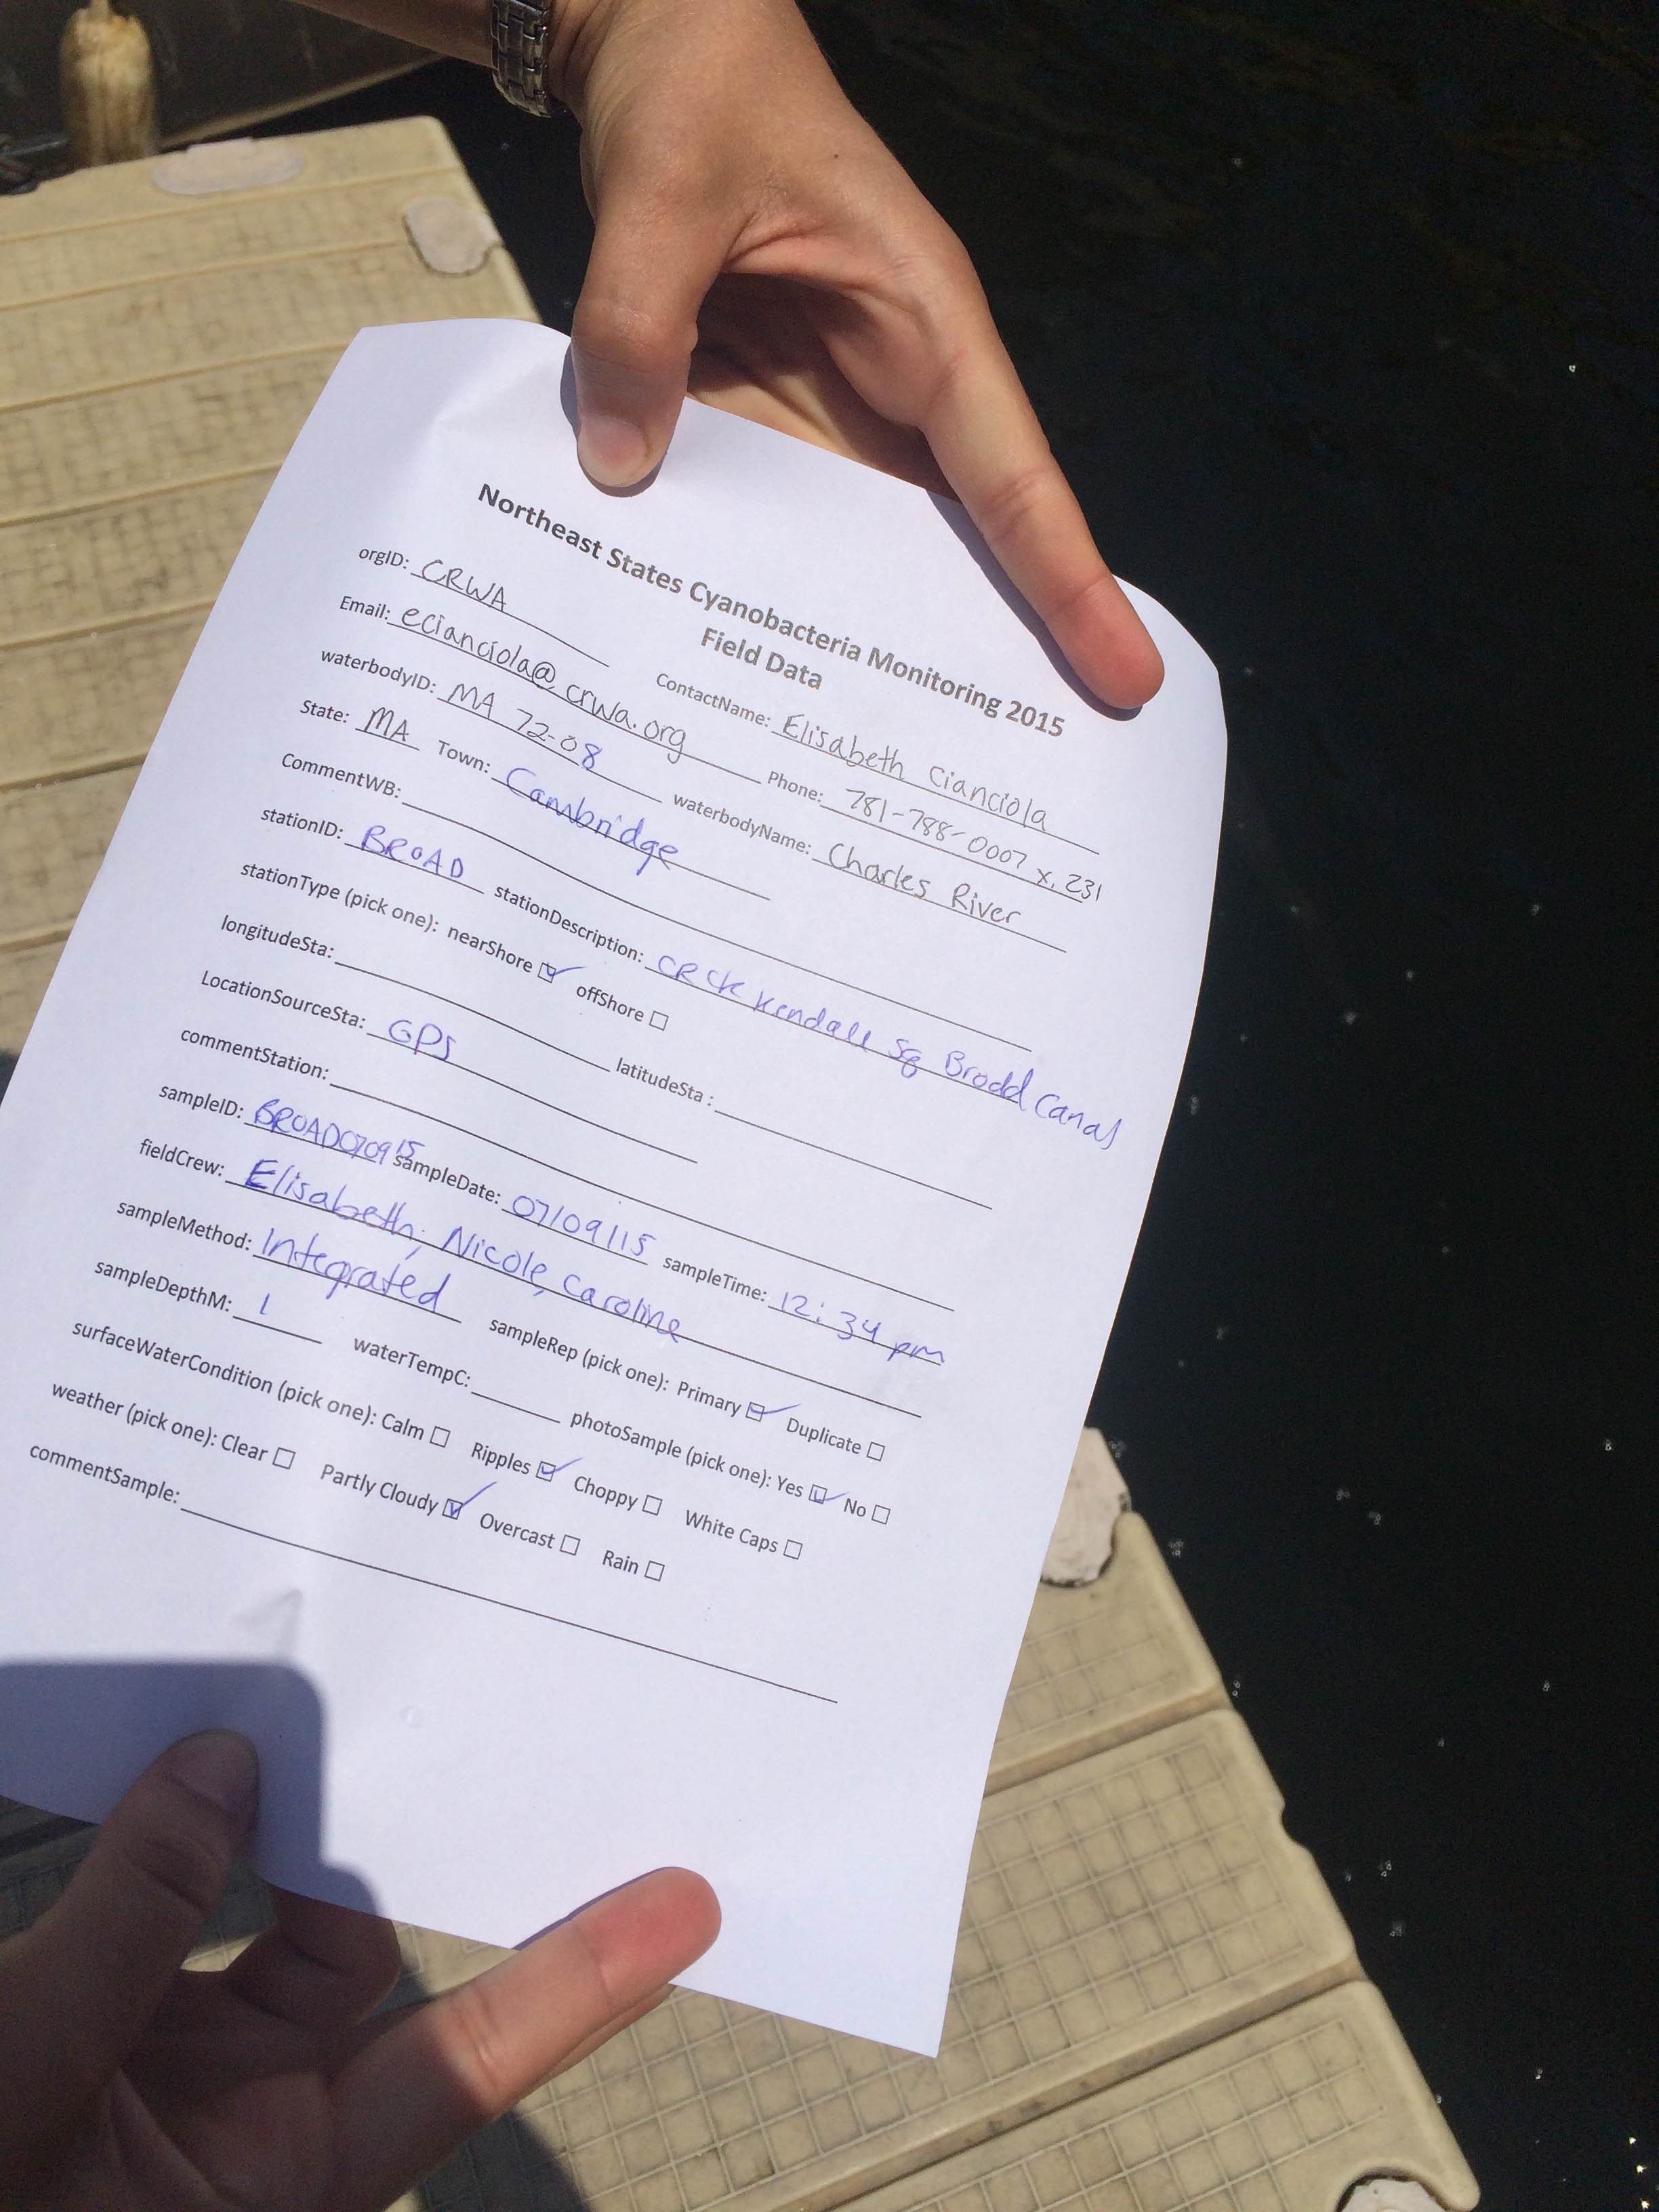 Northeast States Cyanobacteria Monitoring 2015
Field Data
orgID: CRWA ContactName: Elisabeth Cianciola
Email: ecianciola@crwa.org Phone: 781-788-0007 x. 231
waterbodyID: MA 72-08 waterbodyName: Charles River
State: MA Town: Cambridge
CommentWB:
stationID: BROAD stationDescription: CRCK Kendall Sq Broad Canal
stationType (pick one): nearShore ☑ offShore ☐
longitudeSta: latitudeSta :
LocationSourceSta: GPS
commentStation:
sampleID: BROAD070915 sampleDate: 07/09/15 sampleTime: 12:34 pm
fieldCrew: Elisabeth, Nicole, Caroline
sampleMethod: Integrated sampleRep (pick one): Primary ☑ Duplicate ☐
sampleDepthM: 1 waterTempC: photoSample (pick one): Yes ☑ No ☐
surfaceWaterCondition (pick one): Calm ☐ Ripples ☑ Choppy ☐ White Caps ☐
weather (pick one): Clear ☐ Partly Cloudy ☑ Overcast ☐ Rain ☐
commentSample: